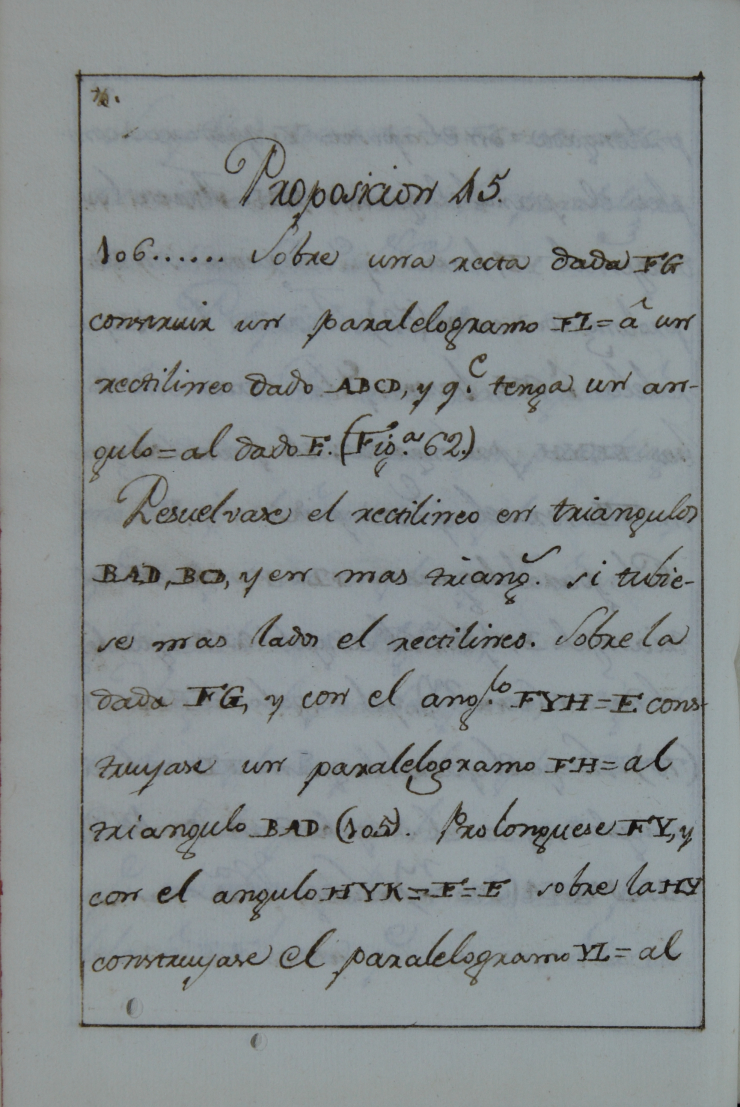 Proposicion 45.
106...... Sobre una recta dada FG
construir un paralelogramo FL=â un
rectilineo dado ABCD, y q.e tenga un an-
gulo=al dado E. (Fig.a 62.)
Resuelvase el rectilineo en triangulos
BAD, BCD, y en mas triang.s si tubie-
se mas lados el rectilineo. Sobre la
dada FG, y con el ang.lo FYH=E cons-
truyase un paralelogramo FH=al
triangulo BAD (105). Prolonguese FY, y
con el angulo HYK=F=E sobre la HY
construyase el paralelogramo YL=al